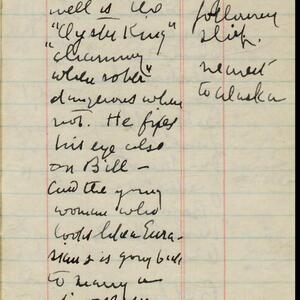 well is the
"Oyster King"
"charming
when sober"
dangerous when
not. He fixes
his eye also
on Bill –
and the young
woman who
looks like a Eura-
sian & is going back
to marry a
following
ship.
nearest
to Alaska